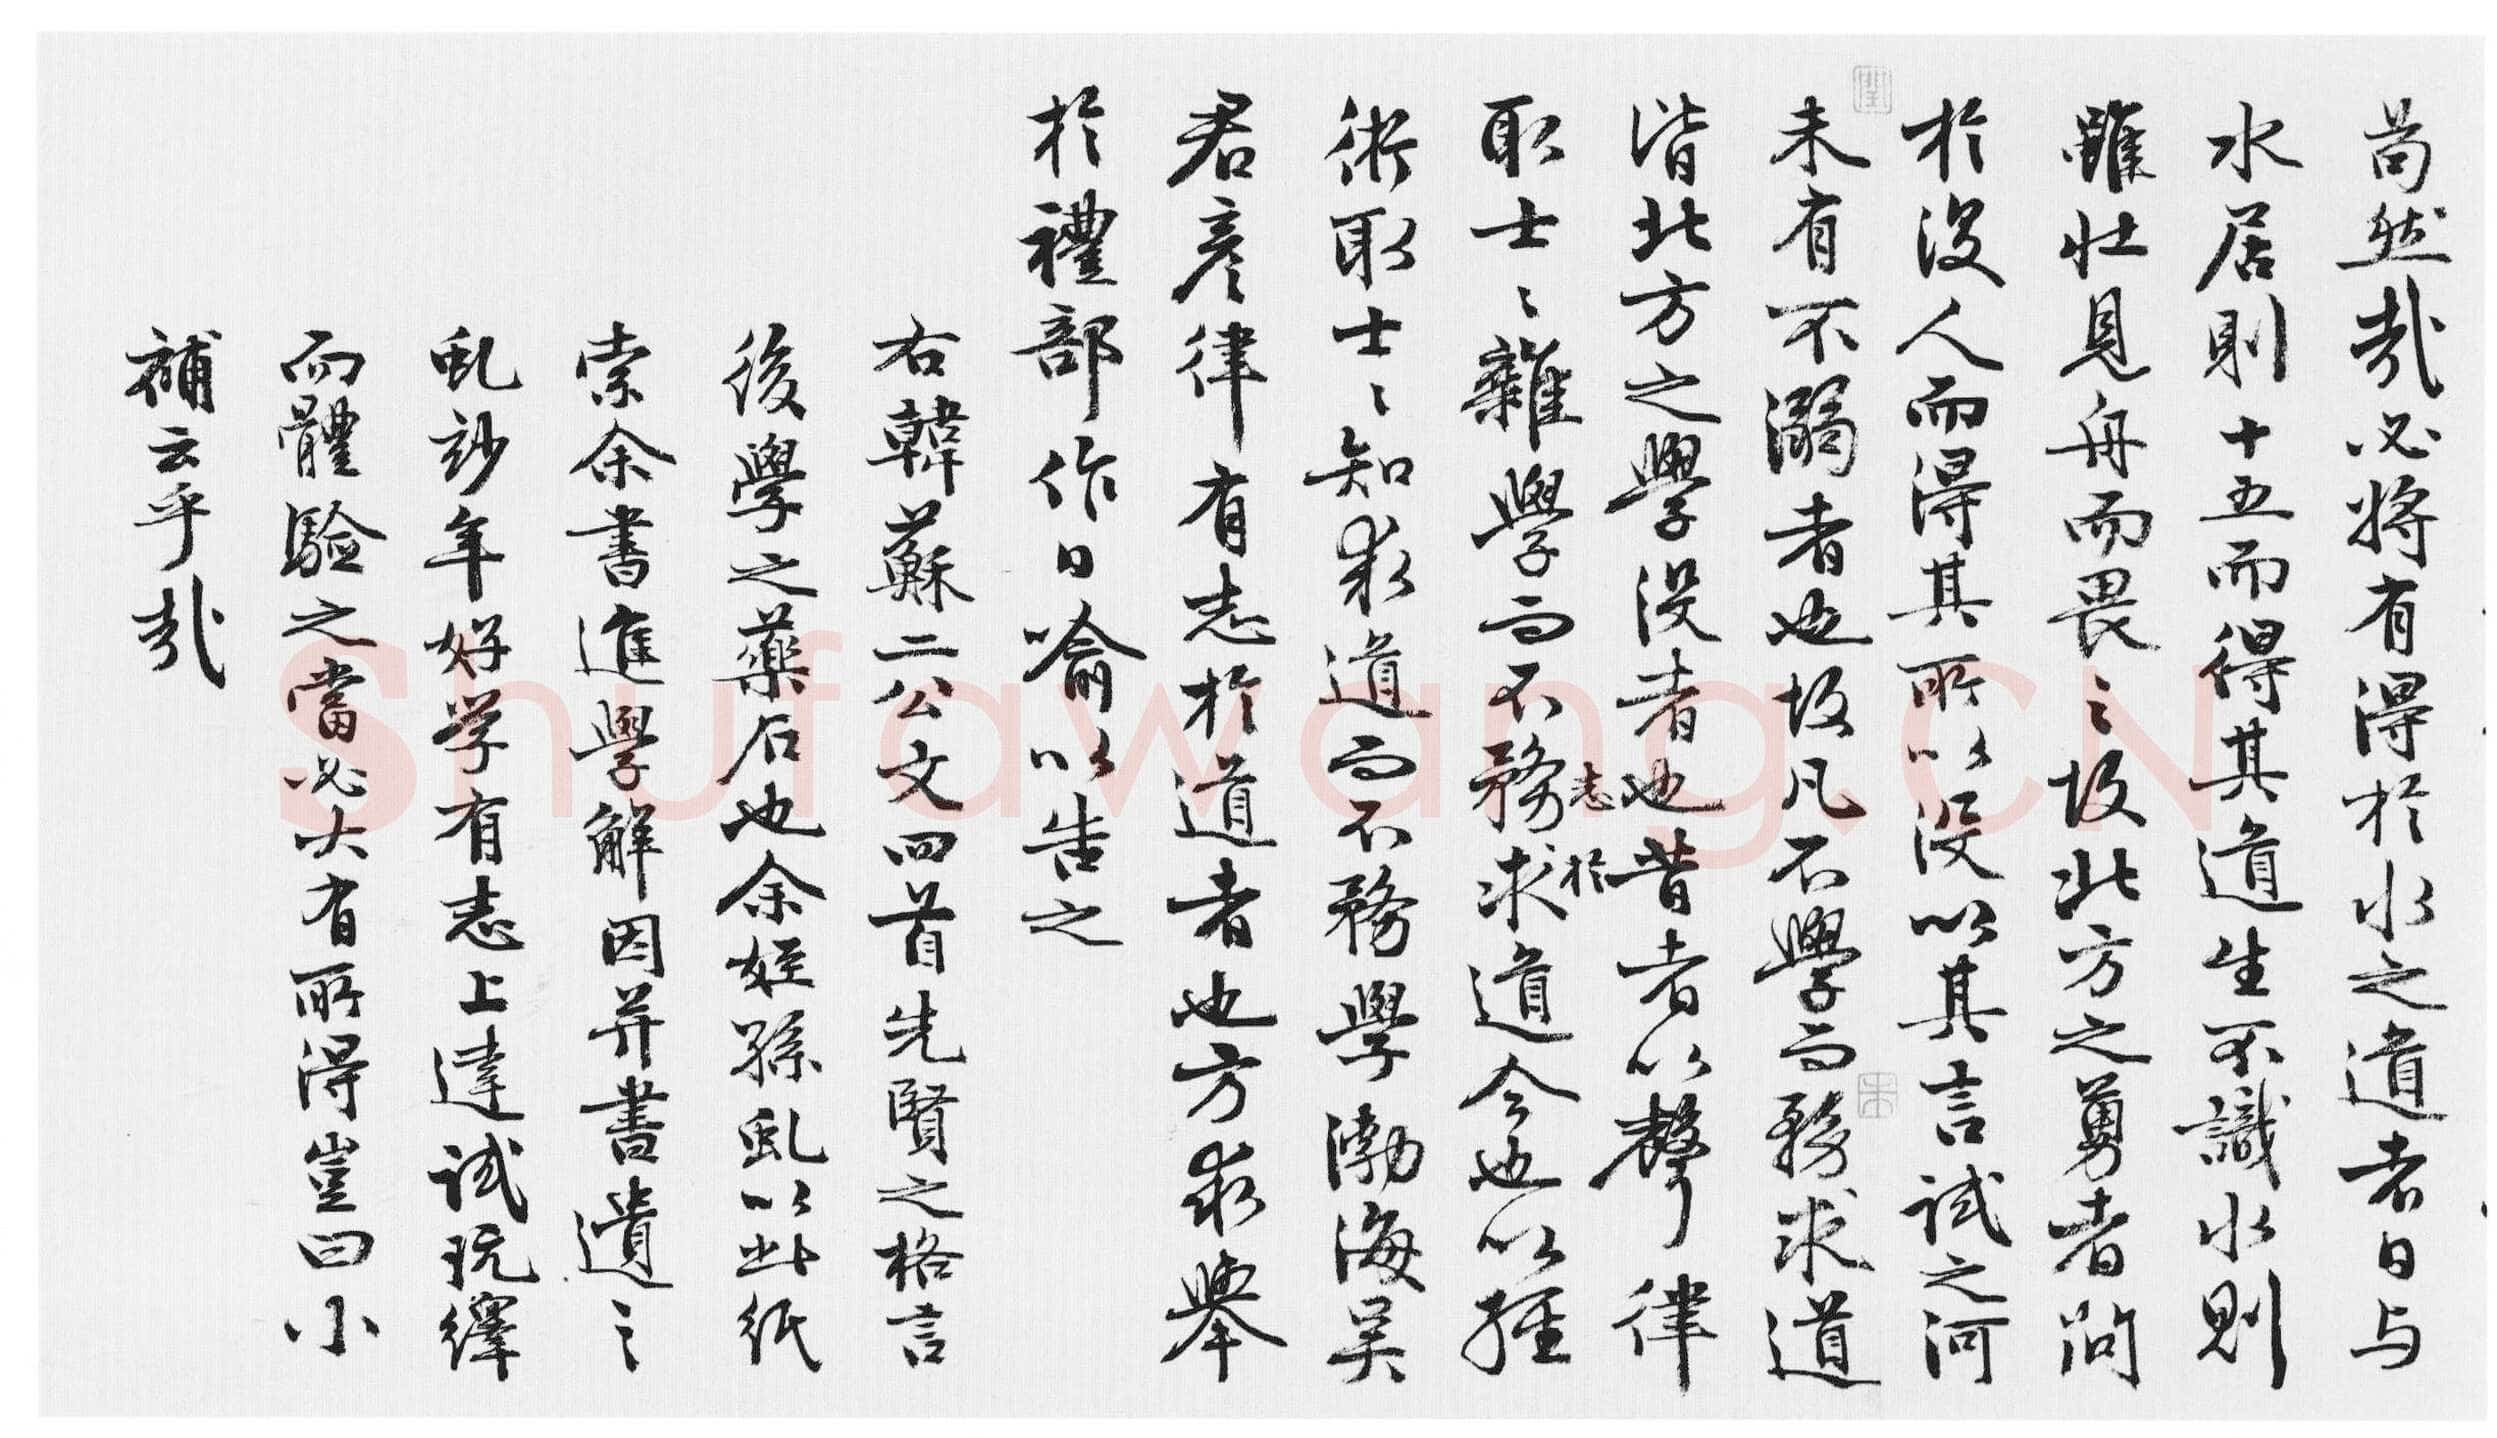 苟然哉必將有得於水之道者日与
水居則十五而得其道生不識水則
雖壯見舟而畏之故北方之勇者问
於没人而得其所以没以其言試之河
未有不溺者也故凡不學而務求道
皆北方之學没者也昔者以聲律
取士〻雜學而不務求道今也以經
志於
術取士〻知求道而不務學渤海吴
君彦律有志於道者也方求舉
於禮部作日喻以告之
右韓蘇二公文四首先賢之格言
後學之藥石也余姪孫虬以此紙
索余書進學解因并書遺之
虬玅年好学有志上達試玩繹
而體驗之當必大有所得豈曰小
補云乎哉
Shufawang.CN